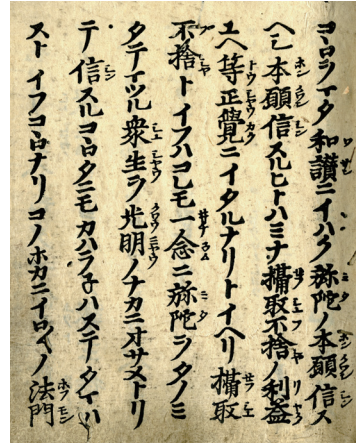 コヽロライタ和讃ニイハク弥陀ノ本願信ス
ヘシ本願信スルヒトハミナ攝取不捨ノ利益ユヘ
等正覺ニイタルナリトイヘリ攝取
不捨トイフハコレモ一念ニ弥陀ヲタノミ
タテマツル衆生ヲ光明ノナカニオサメトリ
テ信スルコヽロタニモカハラ子ハステタマハ
ストイフコヽロナリコノホカニイロ〳〵ノ法門